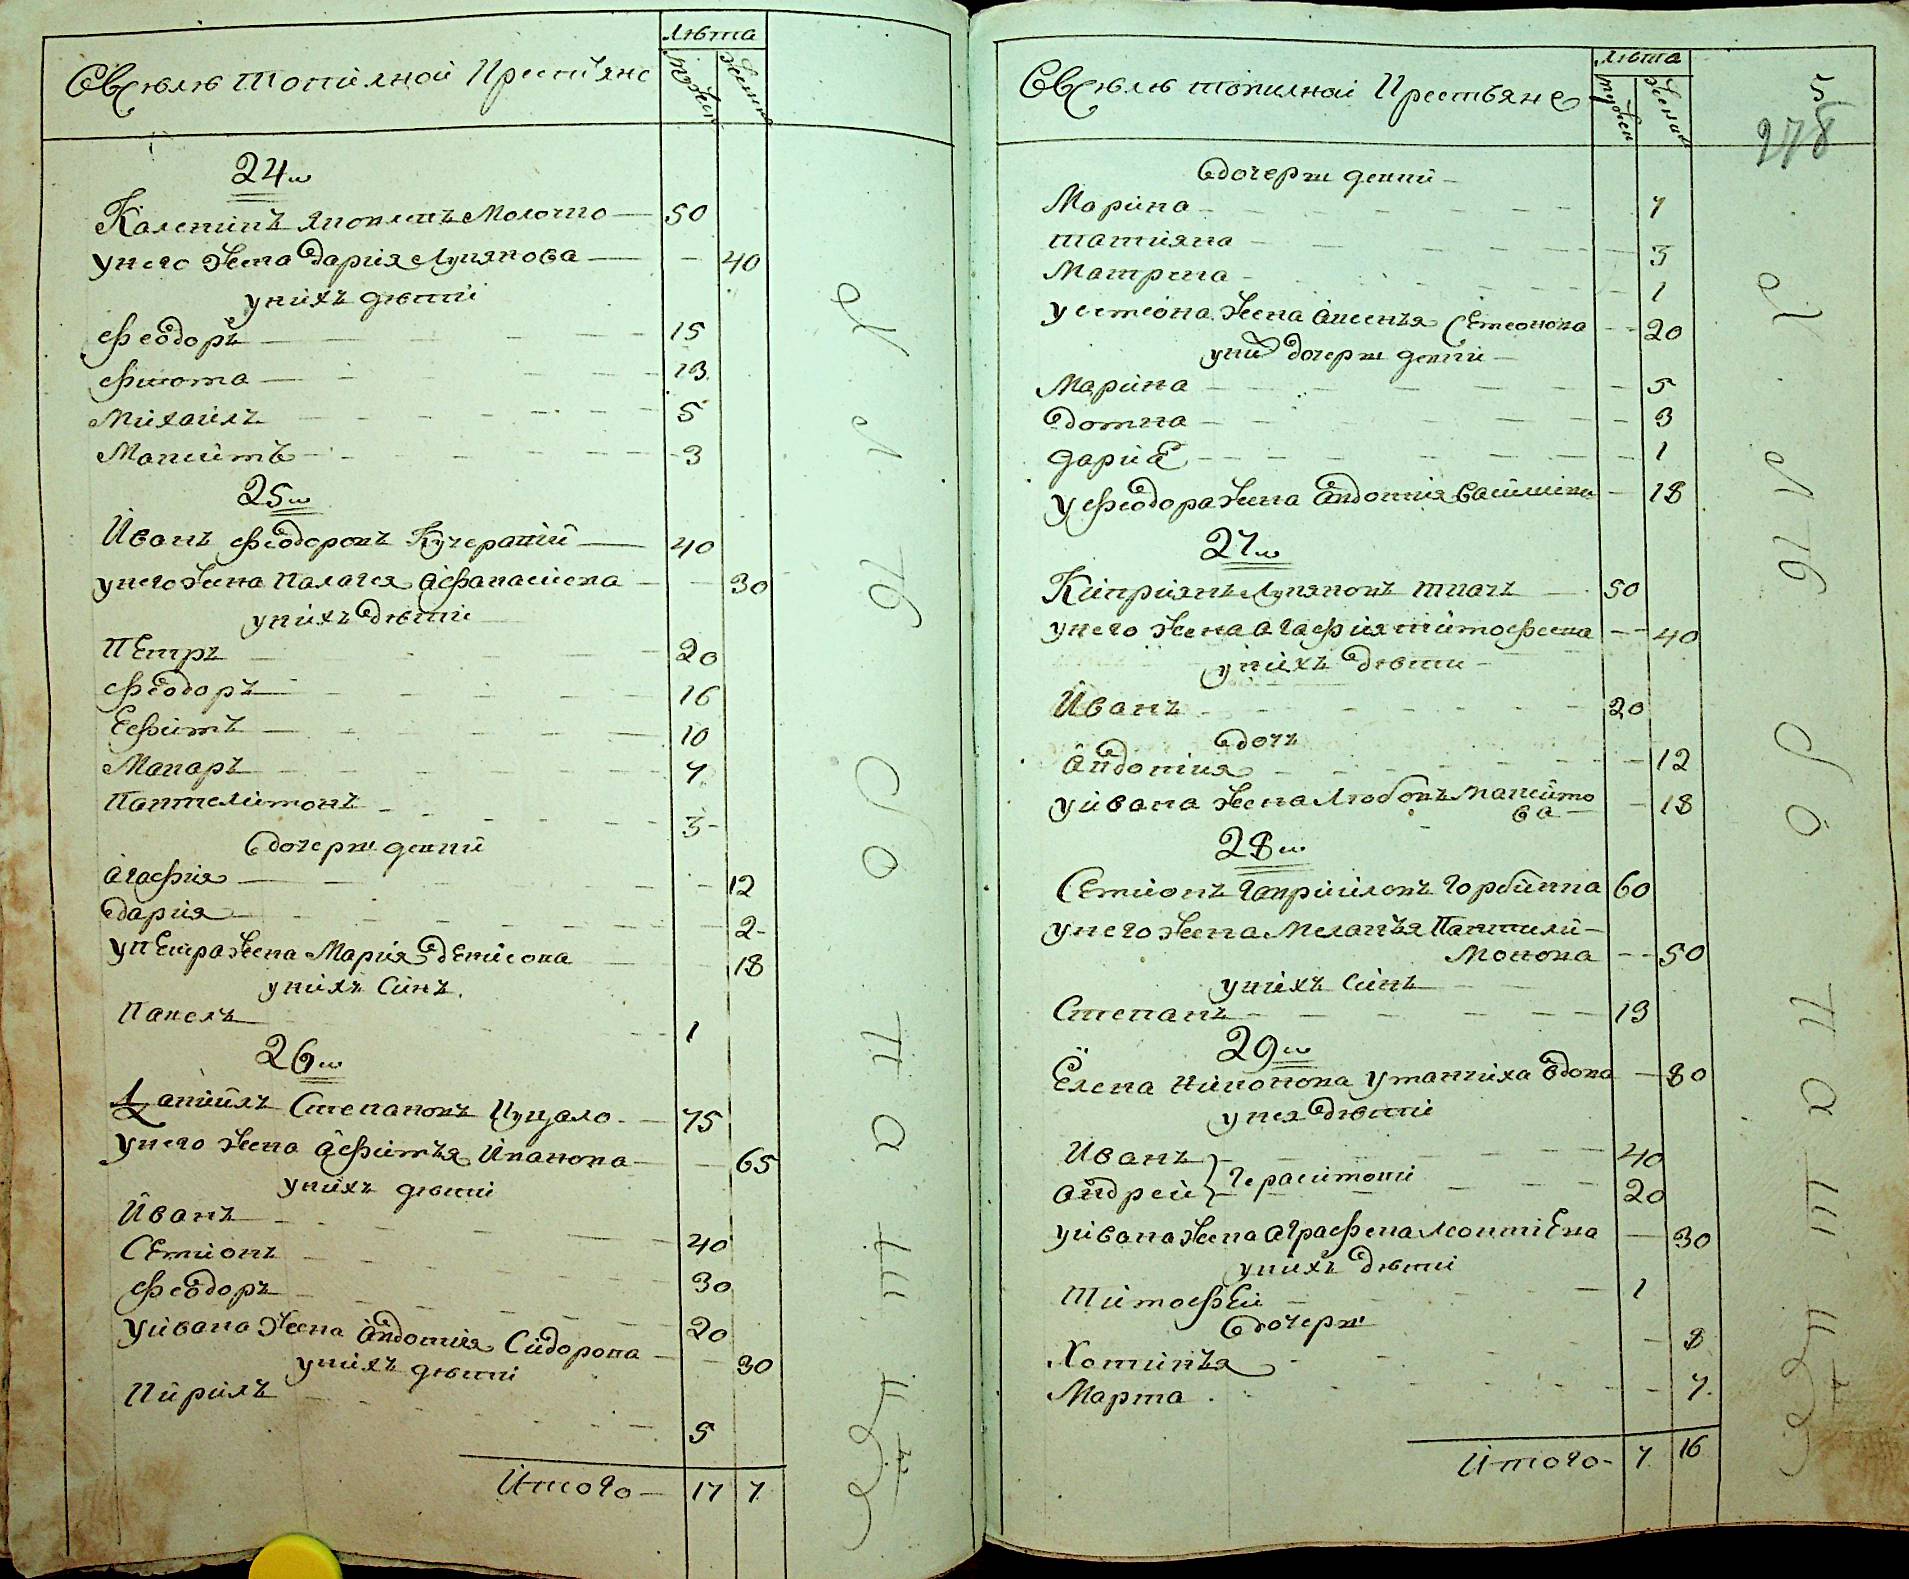 Въ селѣ Топилной Крестьяне
Лѣта
мужеск
женск
24й
Калетинъ Яковлевъ Молочко — 50
у него жена Дария Лукянова — 40
у нихъ дѣтти
Феодоръ 15
Филота 13
Михаилъ 5
Макситъ 3
25й
Иванъ Феодоровъ Кучеравий — 40
у него жена Палагея Афанасиева — 30
у нихъ дѣтти
Петръ 20
Феодоръ 16
Ефимъ 10
Макаръ 7
Пантелимонъ 3
дочери девки
Агафия 12
Дария 2
у Петра жена Мария Денисова 18
у нихъ синъ
Павелъ 1
26й
Даниилъ Степановъ Цуцало 75
у него жена Афимъя Иванова 65
у нихъ дѣтти
Иванъ 40
Семионъ 30
Феодоръ 20
у Ивана жена Авдотия Сидорова 30
у нихъ дѣтти
Кирилъ 5
Итого 17 7
Въ селѣ Топилной Крестьяне
Лѣта
мужеск
женск
5
278
дочери девки
Марина 7
Татияна 3
Матрена 1
у Семиона жена Аксенъя Семеонова 20
у них дочери девки
Марина 5
Домна 3
Дария 1
у Феодора жена Авдотия Василиева 18
27й
Киприянъ Лукяновъ Ткачъ 50
у него жена Агафия Тимофеева 40
у нихъ дѣтти
Иванъ 20
дочъ
Авдотия 12
у Ивана жена Любовъ Макситмо
ва 18
28й
Семионъ Гаврииловъ Горбинка 60
у него жена Меланъя Пантилий
монова 50
у нихъ синъ
Степанъ 13
29й
Елена Никонова Уманчиха вдова 80
у нея дѣтти
Иванъ 40
Герасимови
Андрей 20
у Ивана жена Аграфена Леонтиева 30
у нихъ дѣтти
Тимофей 1
дочери
Хотинъя 8
Марта 7
Итого 7 16